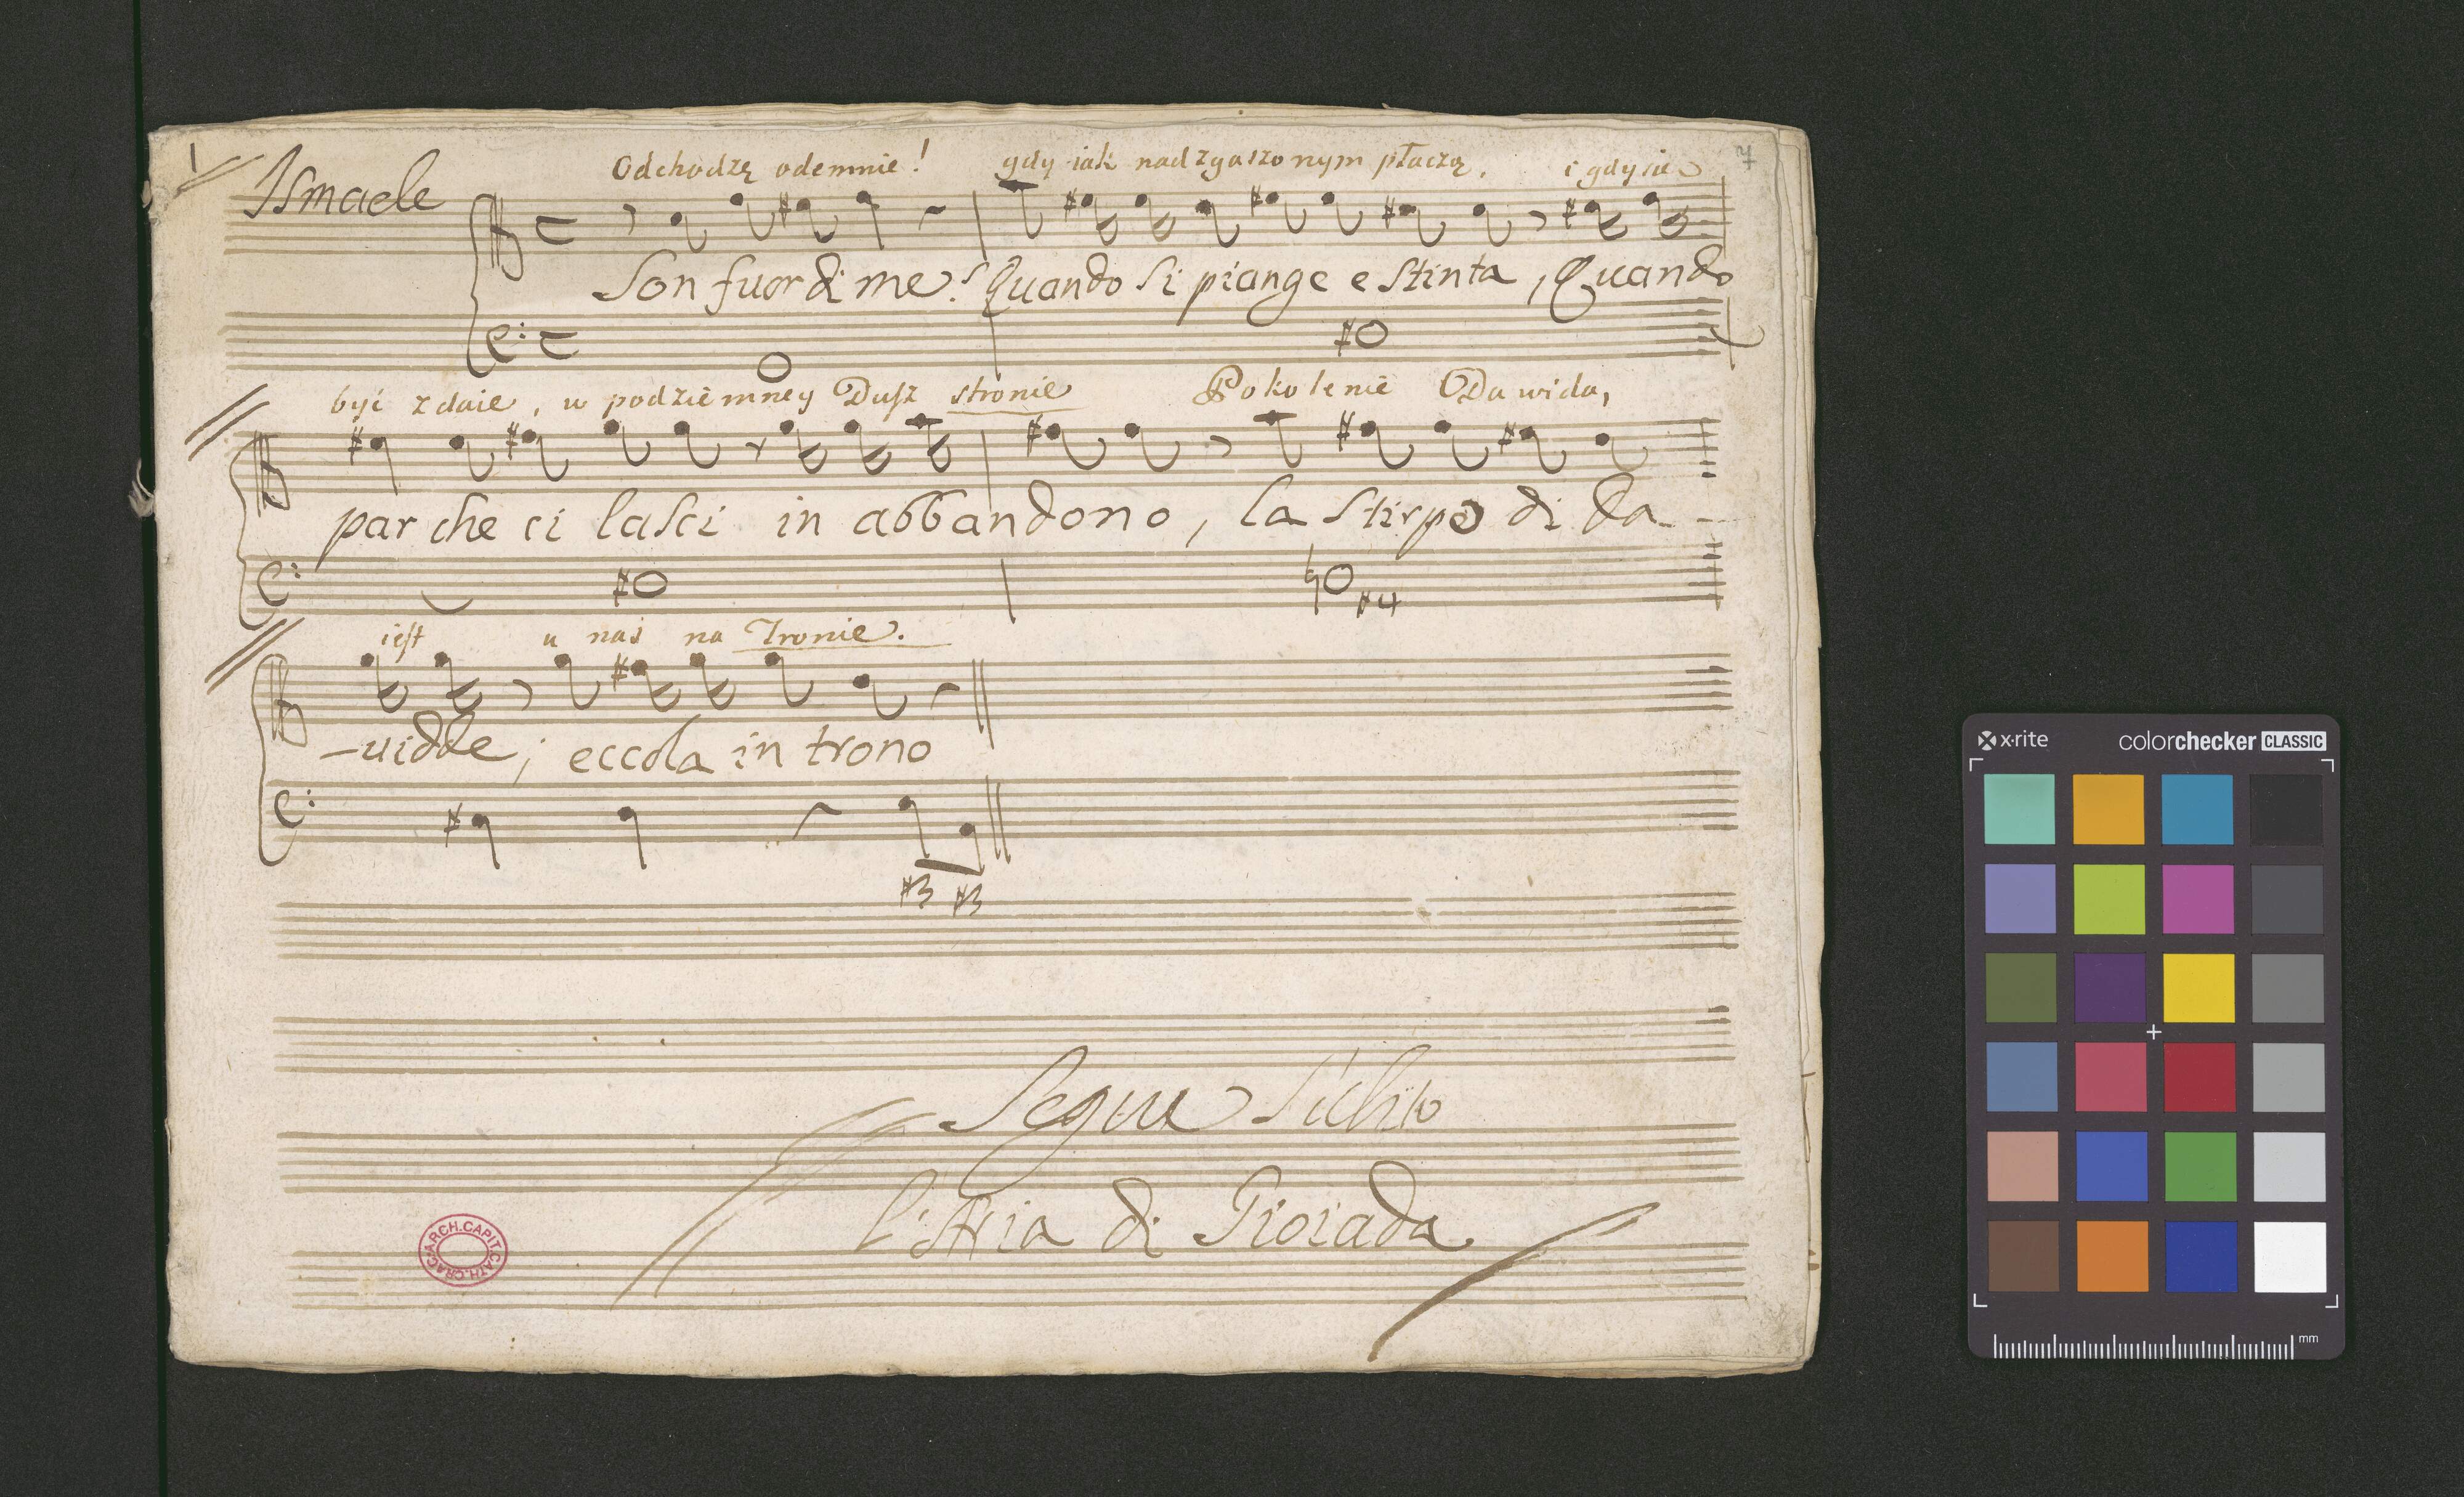 1
7
Ismaele
Odchodzę odemnie! gdy iak nad zgaszonym płaczą, i gdy sie
Son fuor di me! Quando si piange estinta, Quando
być zdaie, w podziemney Dusz stronie Pokolenie Dawida,
par che ci lasci in abbandono, la stirpe di Da-
#4
iest u nas na Tronie.
-uidde; eccola in trono
#3 #3
Segue
l'Aria di Gioiada
ARCH.CAPIT.CATH.CRAC.
x·rite colorchecker CLASSIC
mm